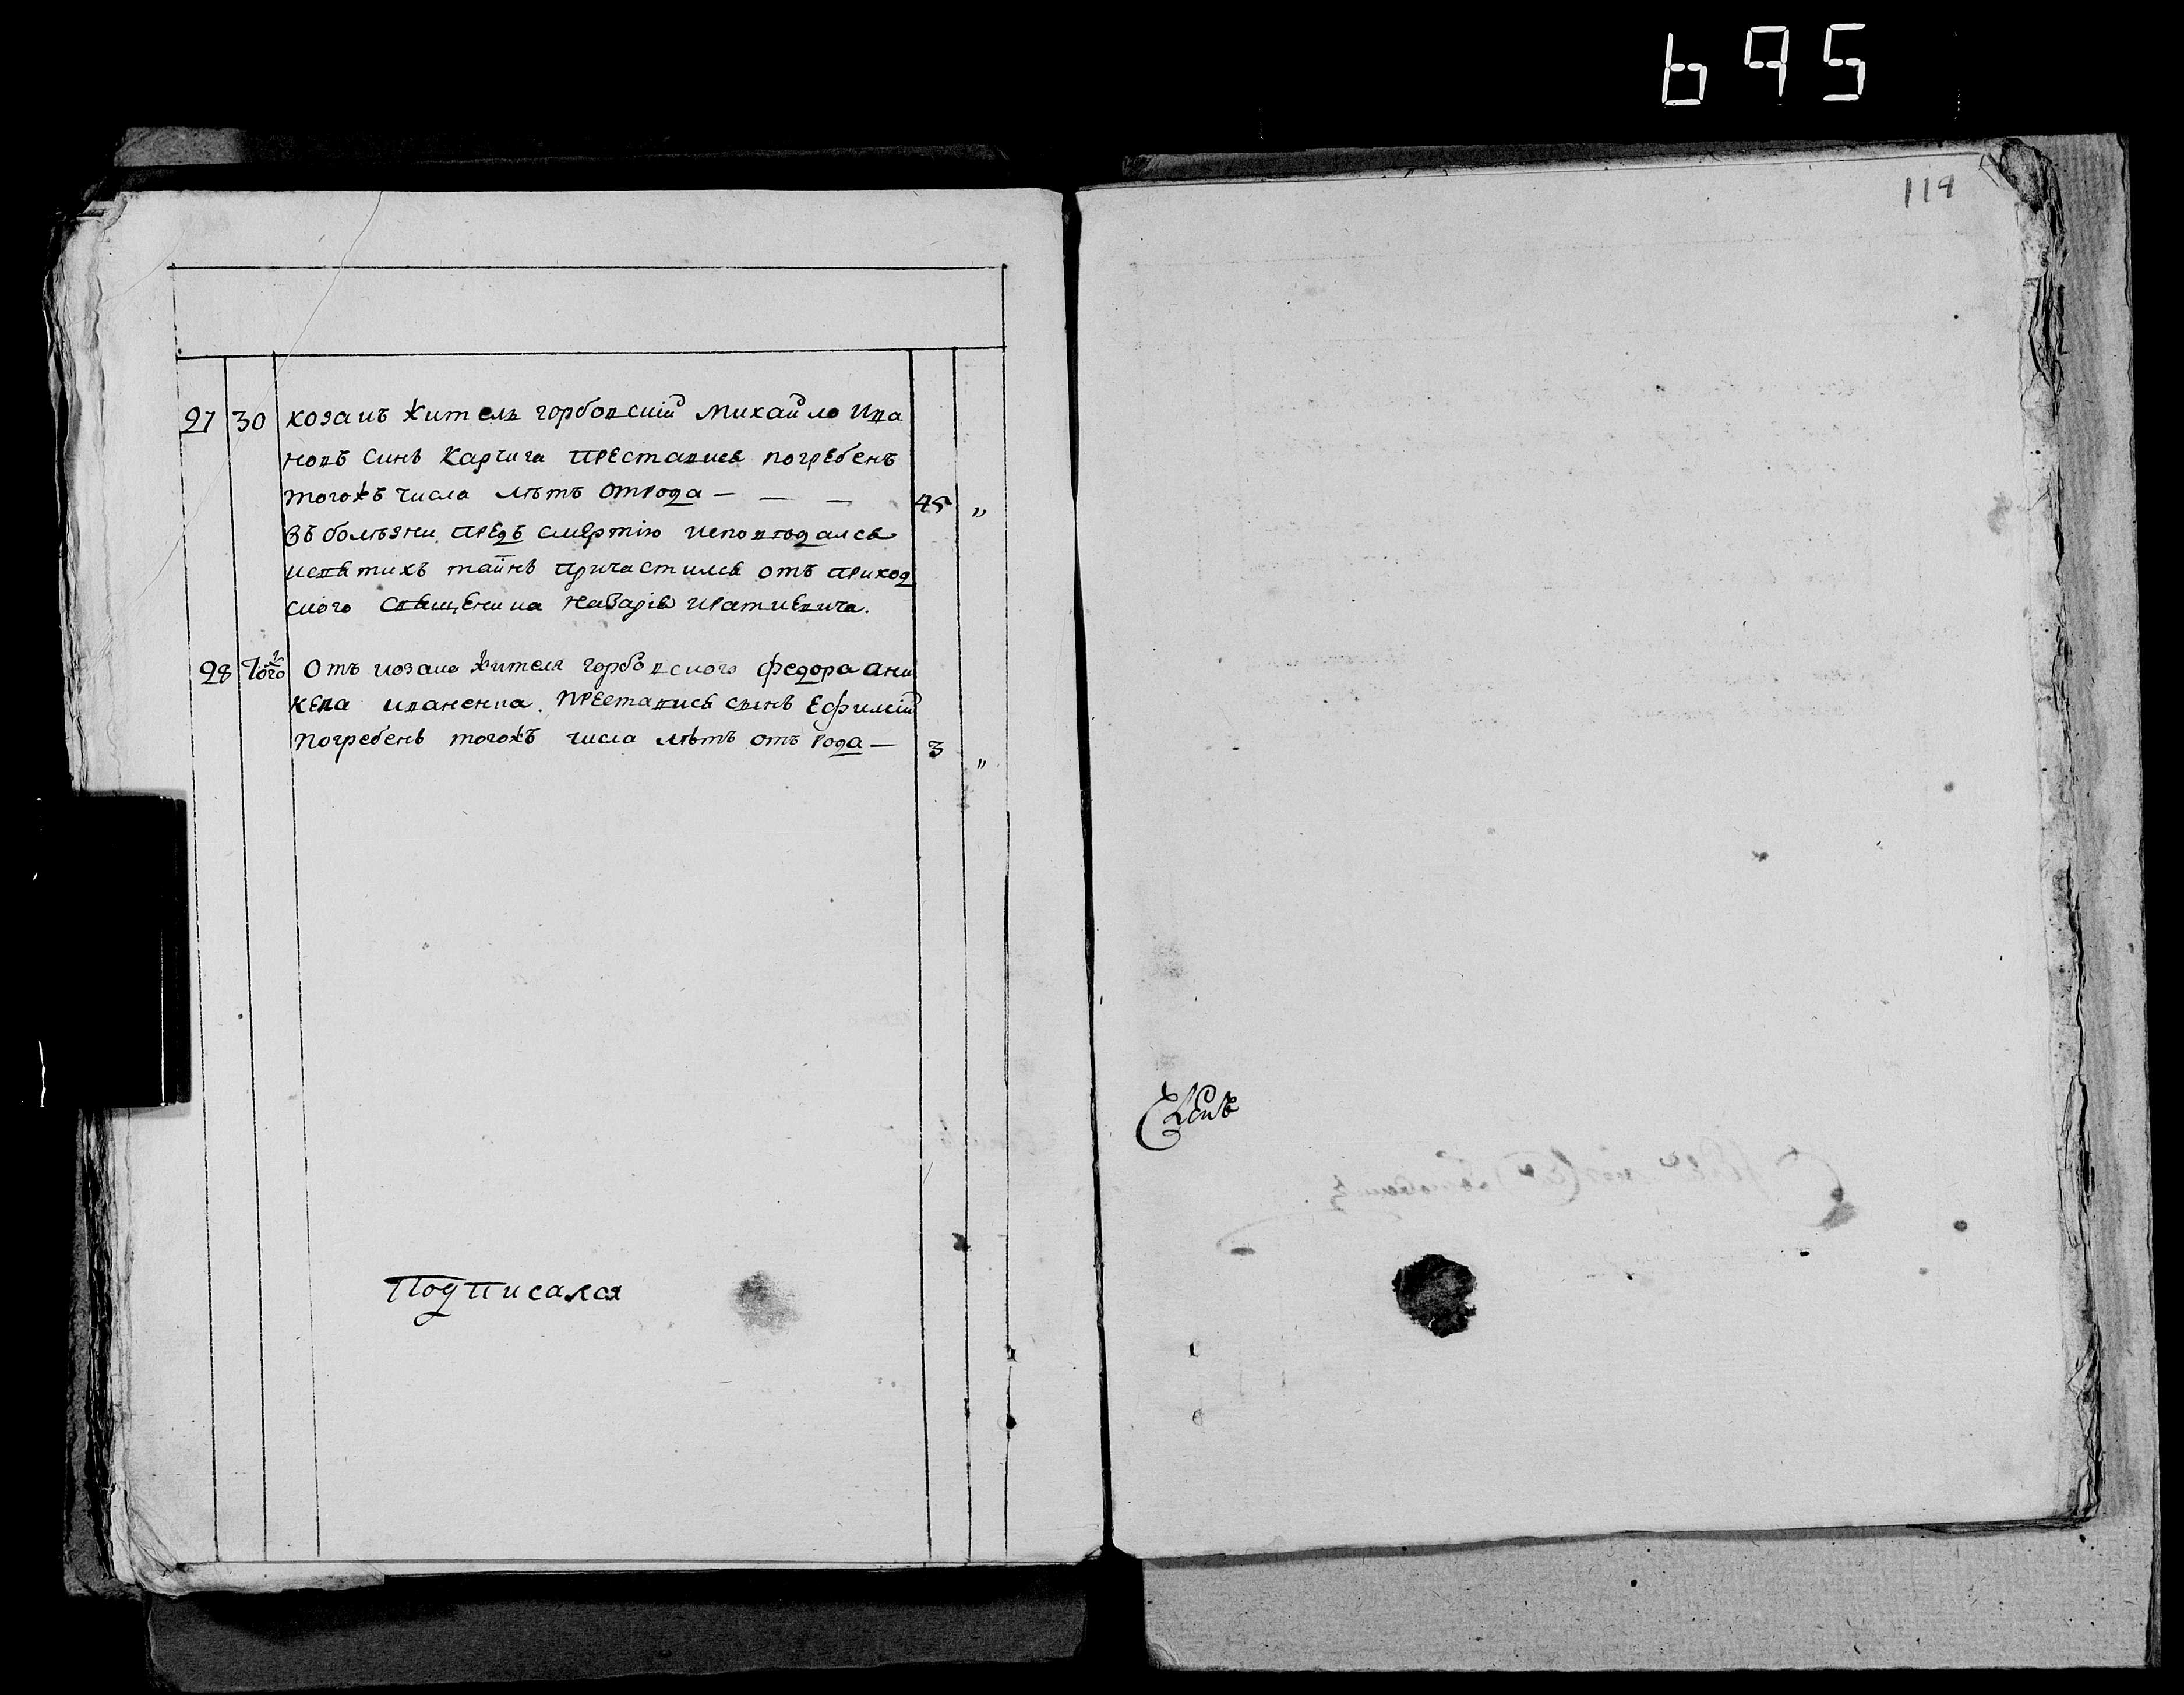 695
118
27 30 козакъ житель горбовский Михайло Ива
новъ синъ Карчига преставися погребенъ
тогожъ числа лѣтъ от рода — — — 45 „
въ болѣзни предъ смертію исповѣдался
исвятихъ таинъ причастился отъ приход
ского священика Назарія
28 Того Отъ козака жителя горбовского федора ани
кева иваненка преставися синъ Ефимій
погребенъ тогожъ числа лѣтъ отъ рода — 3 „
подписался